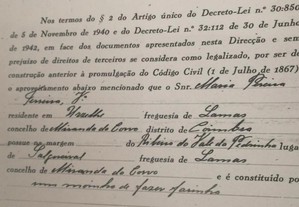 Nos termos do § 2 do Artigo único do Decreto-Lei n.º 30:850
de 5 de Novembro de 1940 e do Decreto-Lei n.º 32:112 de 30 de Junho
de 1942, em face dos documentos apresentados nesta Direcção e sem
prejuízo de direitos de terceiros se considera legalizado, por ser de
construção anterior à promulgação do Código Civil (1 de Julho de 1867)
o aproveitamento abaixo mencionado que o Snr. Maria Pereira
residente em freguesia de Lamas
concelho de Miranda do Corvo distrito de Coimbra
possue na margem do Ribeiro do Vale do lugar
de freguesia de Lamas
concelho de Miranda do Corvo e é constituído por
um moinho de fazer farinha